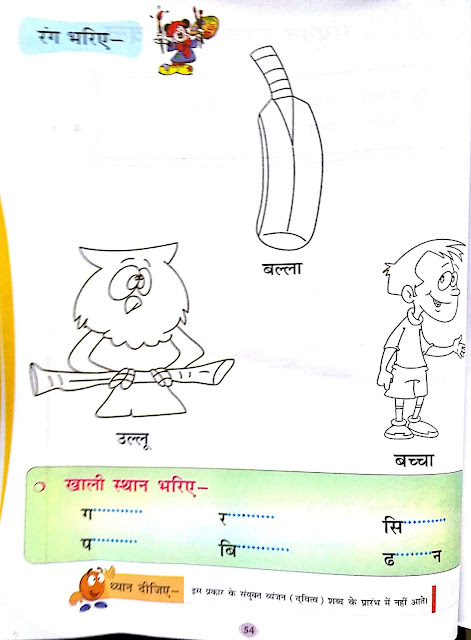 रंग भरिए–
बल्ला
उल्लू
बच्चा
खाली स्थान भरिए–
ग··········· र·········· सि·········
प··········· बि·········· ढ········न
ध्यान दीजिए– इस प्रकार के संयुक्त व्यंजन (द्वित्व) शब्द के प्रारंभ में नहीं आते।
54